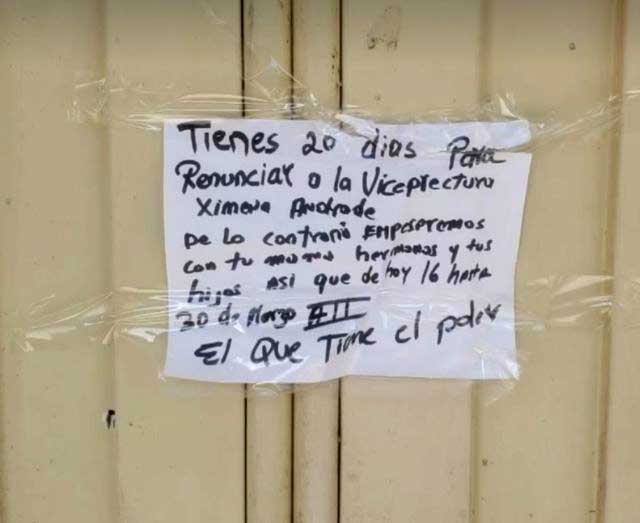 Tienes 20 dias Para
Renunciar a la Viceprectura
Ximena Andrade
De lo contrario EMPesaremos
con tu mama hermanas y tus
hijos Asi que de hoy 16 hasta
30 de Marzo
El Que Tiene el poder